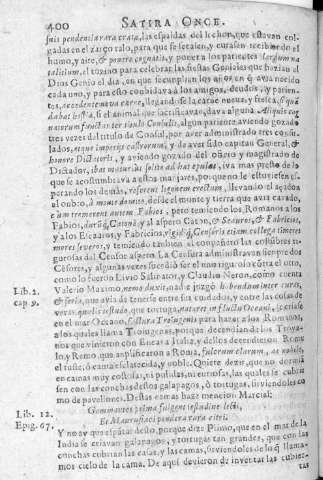 400 SATIRA ONCE.
suis pendenti rara crate, las espaldas del lechon, que estavan col-
gadas en el zarço ralo, para que se secasen, y curasen recibiendo el
humo, y aire, & ponere cognatis, y poner a los parientes lardum na
talitium, el tozino para celebrar las fiestas Geniales que hazian al
Dios Genio el dia, en que se cumplian los años en q̃ avia nacido
cada uno, y para esto combidava a los amigos, deudos, y parien-
tes, accedente nova carne, llegando se la carne nueva, y fresca, si quã
dabat hostia, si el animal que sacrificavan dava alguna. Aliquis cog
natorum functus ter titulo Consulis, algun pariente aviendo gozado
tres vezes del titulo de Consul, por aver administrado tres consu-
lados, atque imperiis castrorum, y de aver sido capitan General, &
honore Dictatoris, y aviendo gozado del oficio y magistrado de
Dictador, ibat maturius solito ad has epulas, iva mas presto de lo
que se acostumbrava a estos manjares, por que no le estuviesen es-
perando los demàs, referens ligonem erectum, llevando el açadon
al onbro, à monte domito, desde el monte y tierra que avia cavado,
cùm tremerent autem Fabios, pero temiendo los Romanos a los
Fabios, durũq; Catonẽ, y al aspero Caton, & Scauros, & Fabricios,
y a los Escauros, y Fabricios, rigidiq; Censoris etiam collega timeret
mores severos, y temiendo tambien el compañero las costumbres ri-
gurosas del Censor aspero. La Censura administravan siempre dos
Cẽsores, y algunas vezes sucediò ser el uno riguroso cõtra el otro,
como lo fueron Livio Salinator, y Claudio Neron, como cuenta
Lib. 2. Valerio Maximo, nemo duxit, nadie juzgò habendum inter curas,
cap 9. & seria, que avia de tenerse entre sus cuidados, y entre las cosas de
veras, qualis testudo, que tortuga, nataret in fluctu Oceani, se criase
en el mar Oceano,
a los quales llama Troiugenas, porque decendian de los Troya-
nos que vinieron con Eneas a Italia, y destos decendieron Romu
lo, y Remo, que amplificaron a Roma, fulcrum clarum, ac nobile,
el fuste, ò cama esclarecida, y noble. Quiere dezir, que no dormia
en camas muy costosas, ni pulidas, ni curiosas, las quales se cubrie-
sen con las conchas destos galapagos, ò tortugas, sirviendoles co
mo de pavellones. Destas camas haze mencion Marcial:
Lib. 12. Gemmantes prima fulgent testudine lecti,
Epig. 67. Et Maurusiaci pondera rara citri.
Y no ay que espãtar desto, porque dize Plinio, que en el mar de la
India se criavan galapagos, y tortugas tan grandes, que con las
conchas cubrian las casas, y las camas, sirviendoles de lo q̃ llama-
mos cielo de la cama. De aqui devieron de inventar las cubier-
tas